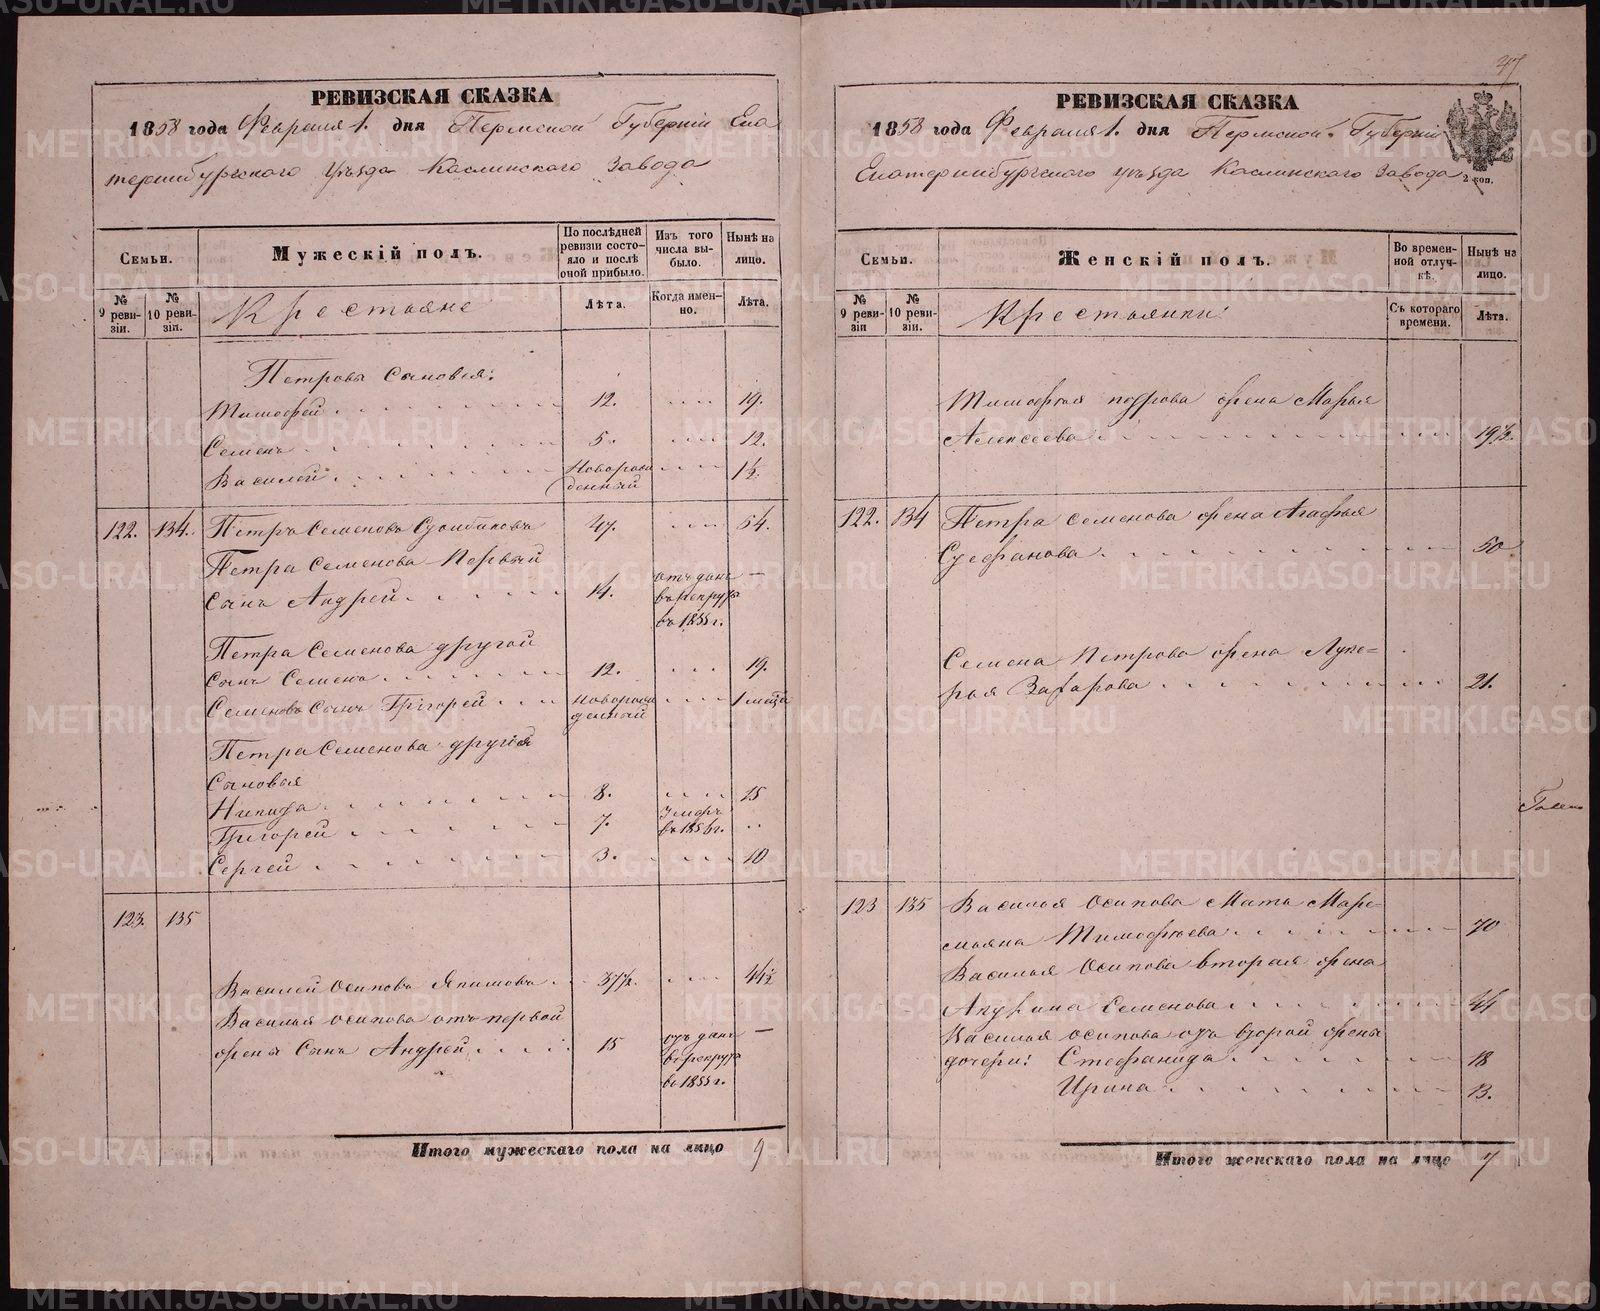 РЕВИЗСКАЯ СКАЗКА
1858 года Февраля 1. дня Пермской Губерніи Ека
теринбургского Уѣзда Каслинского Завода
Семьи.
Мужескій полъ.
По послѣдней ревизіи состояло и послѣ оной прибыло.
Изъ того числа выбыло.
Нынѣ на лицо.
№ 9 ревизіи.
№ 10 ревизіи.
Крестьяне
Лѣта.
Когда именно.
Лѣта.
Петровы Сыновья:
Тимофей 12. 19.
Семенъ 5. 12.
Василей Новорожденный 1½.
122. 134. Петръ Семеновъ 47. 54.
Петра Семенова Первый
Сынъ Андрей 14. отъ данъ въ рекруты въ 1855 г. —
Петра Семенова другой
Сынъ Семенъ 12. 19.
Семеновъ Сынъ Григорей Новорожденный 1 меца
Петра Семенова другія
Сыновья
Никита 8. 15
Григорей 7. Умеръ въ 1856 г.
Сергей 3. 10
123. 135
Василей Осиповъ Якимовъ 37½. 44½
Василья Осипова отъ первой
жены Сынъ Андрей 15 отъ данъ въ рекруты въ 1855 г. —
Итого мужескаго пола на лицо 9
47
РЕВИЗСКАЯ СКАЗКА
1858 года Февраля 1. дня Пермской Губерніи
Екатеринбургского уѣзда Каслинского Завода
2 коп.
Семьи.
Женскій полъ.
Во временной отлучкѣ.
Нынѣ на лицо.
№ 9 ревизіи
№ 10 ревизіи.
Крестьянки
Съ котораго времени.
Лѣта.
Тимофея петрова жена Марья
Алексеева 19½.
122. 134 Петра Семенова жена Агафья
Стефанова 50
Семена Петрова жена Луке=
рья Захарова 21.
123 135 Василья Осипова Мать Маре=
мьяна Тимофѣева 70
Василья Осипова вторая жена
Семенова 44
Василья Осипова отъ второй жены
дочери: Стефанида 18
Ирина 13.
Итого женскаго пола на лицо 7
METRIKI.GASO-URAL.RU